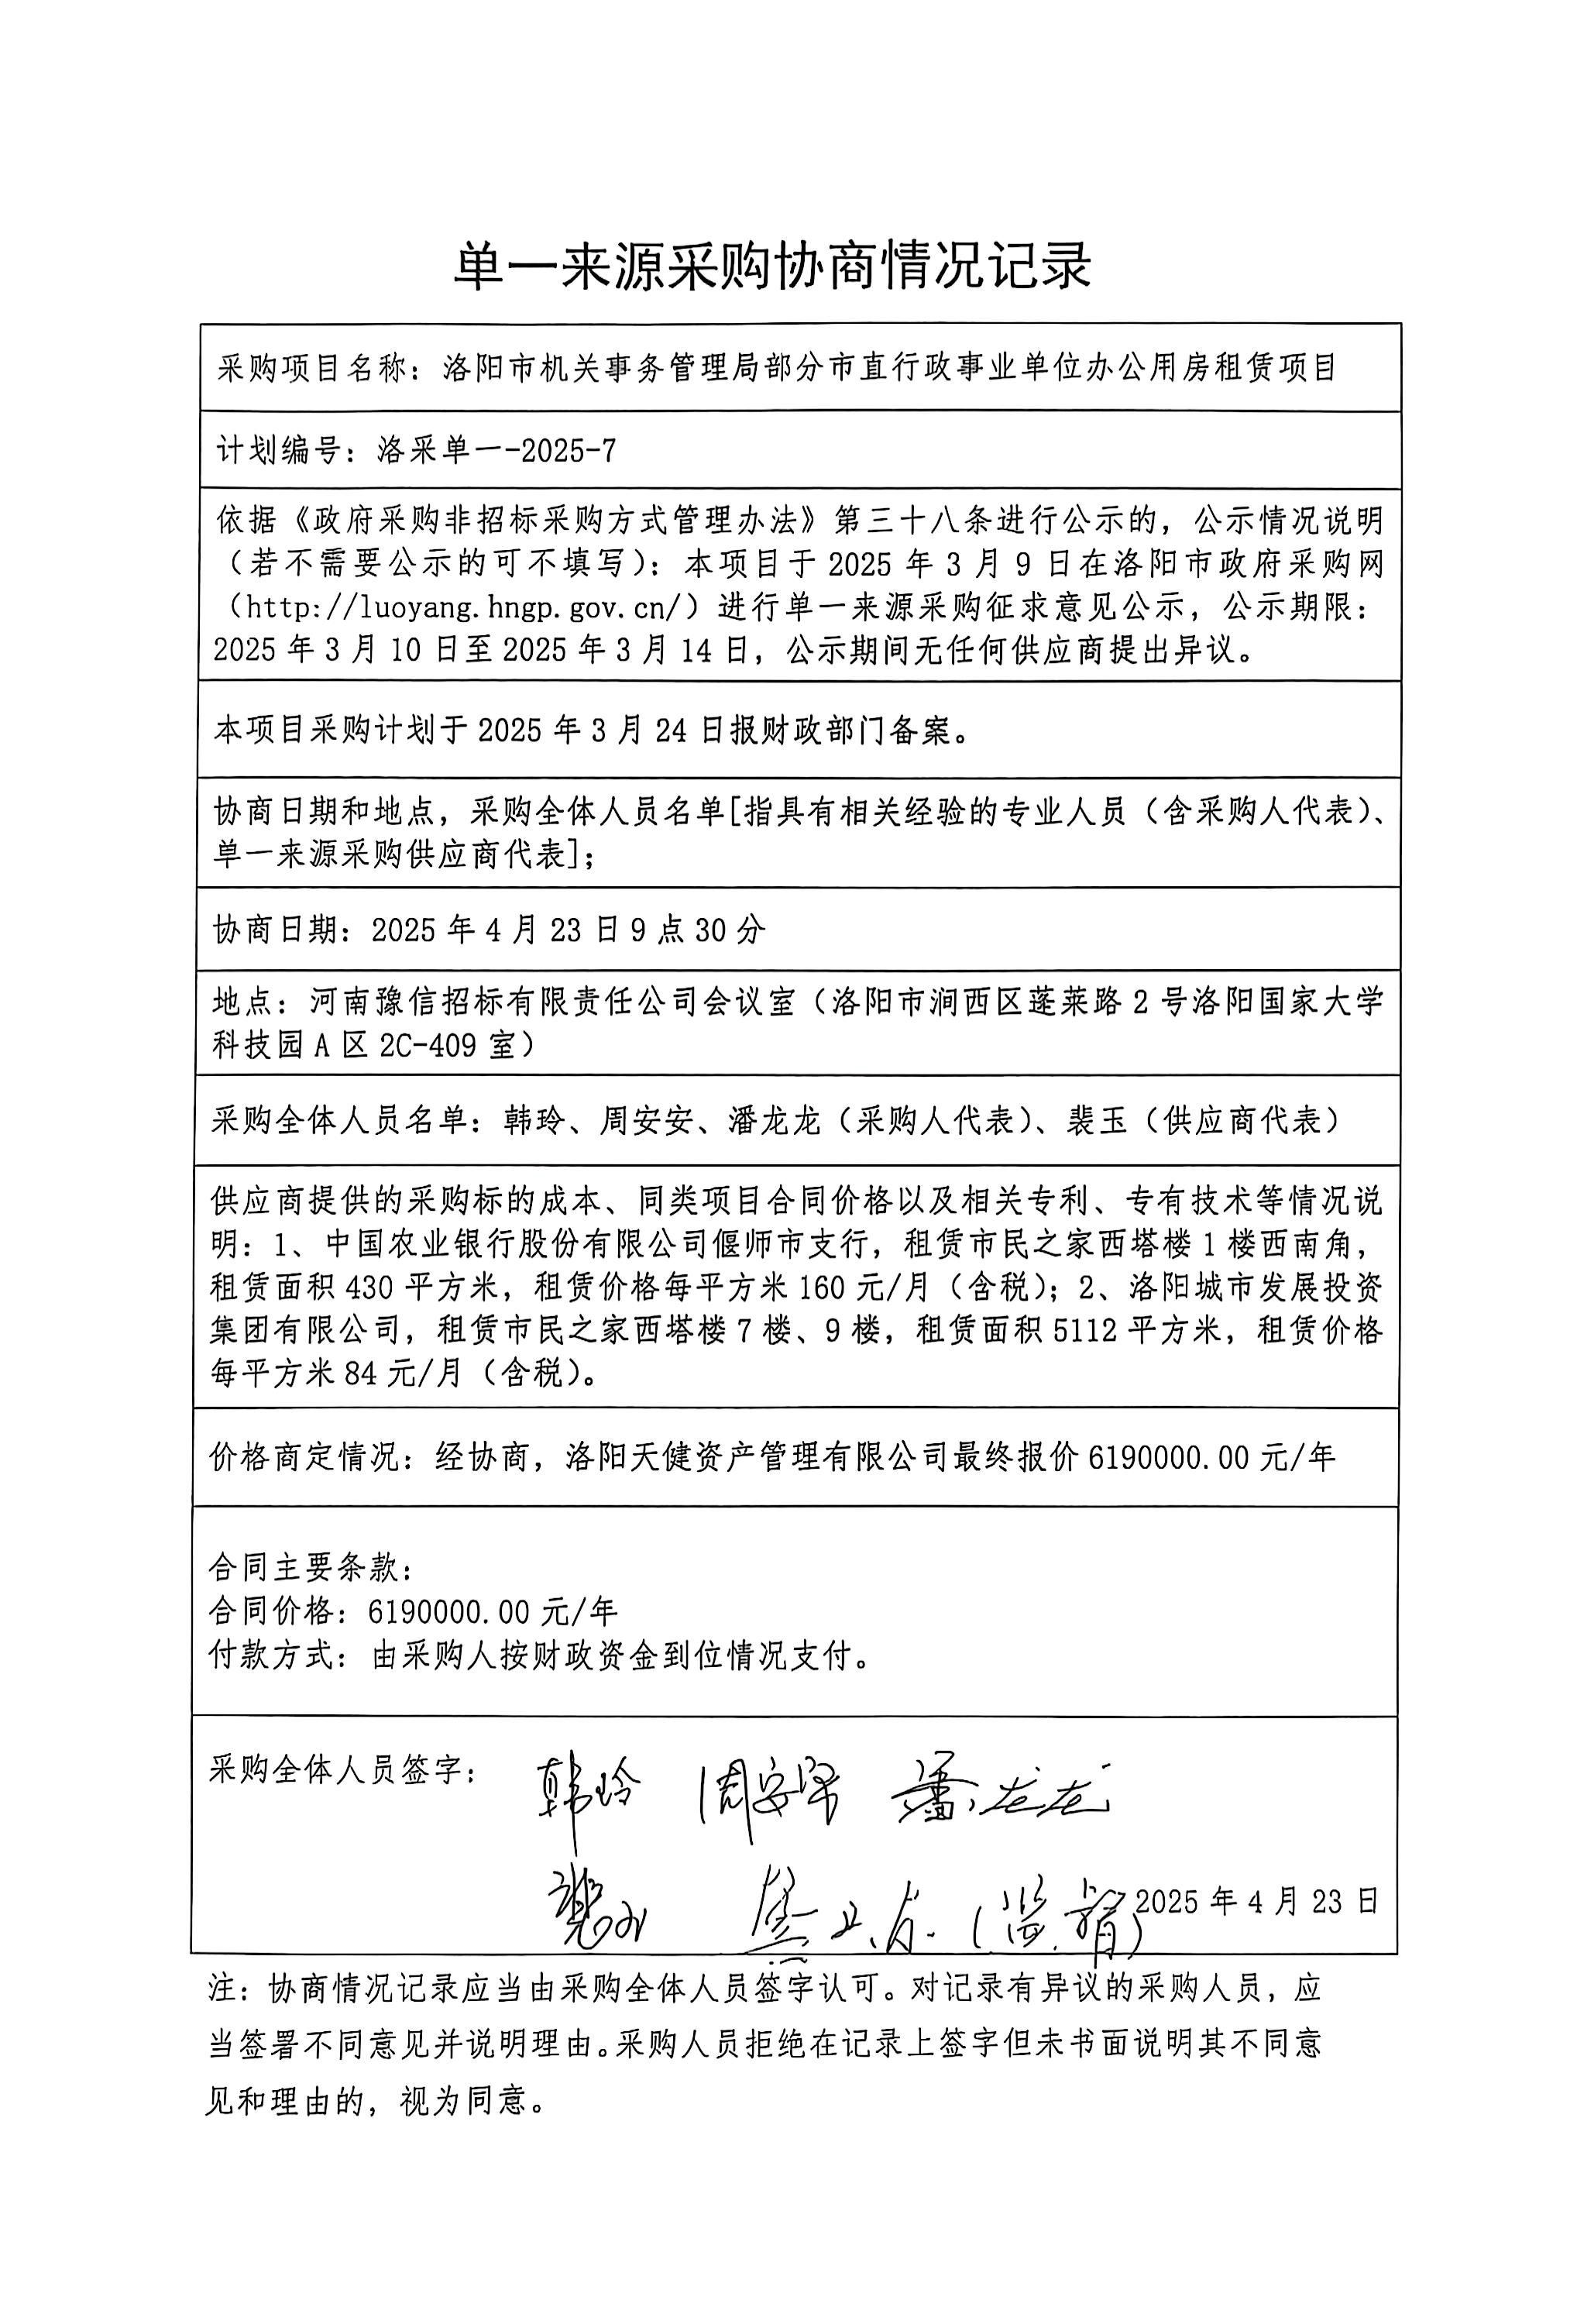 单一来源采购协商情况记录
采购项目名称：洛阳市机关事务管理局部分市直行政事业单位办公用房租赁项目
计划编号：洛采单一-2025-7
依据《政府采购非招标采购方式管理办法》第三十八条进行公示的，公示情况说明
（若不需要公示的可不填写）：本项目于 2025 年 3 月 9 日在洛阳市政府采购网
（http://luoyang.hngp.gov.cn/）进行单一来源采购征求意见公示，公示期限：
2025 年 3 月 10 日至 2025 年 3 月 14 日，公示期间无任何供应商提出异议。
本项目采购计划于 2025 年 3 月 24 日报财政部门备案。
协商日期和地点，采购全体人员名单[指具有相关经验的专业人员（含采购人代表）、
单一来源采购供应商代表]；
协商日期：2025 年 4 月 23 日 9 点 30 分
地点：河南豫信招标有限责任公司会议室（洛阳市涧西区蓬莱路 2 号洛阳国家大学
科技园 A 区 2C-409 室）
采购全体人员名单：韩玲、周安安、潘龙龙（采购人代表）、裴玉（供应商代表）
供应商提供的采购标的成本、同类项目合同价格以及相关专利、专有技术等情况说
明：1、中国农业银行股份有限公司偃师市支行，租赁市民之家西塔楼 1 楼西南角，
租赁面积 430 平方米，租赁价格每平方米 160 元/月（含税）；2、洛阳城市发展投资
集团有限公司，租赁市民之家西塔楼 7 楼、9 楼，租赁面积 5112 平方米，租赁价格
每平方米 84 元/月（含税）。
价格商定情况：经协商，洛阳天健资产管理有限公司最终报价 6190000.00 元/年
合同主要条款：
合同价格：6190000.00 元/年
付款方式：由采购人按财政资金到位情况支付。
采购全体人员签字： 韩玲 周安安 潘龙龙
2025 年 4 月 23 日
注：协商情况记录应当由采购全体人员签字认可。对记录有异议的采购人员，应
当签署不同意见并说明理由。采购人员拒绝在记录上签字但未书面说明其不同意
见和理由的，视为同意。